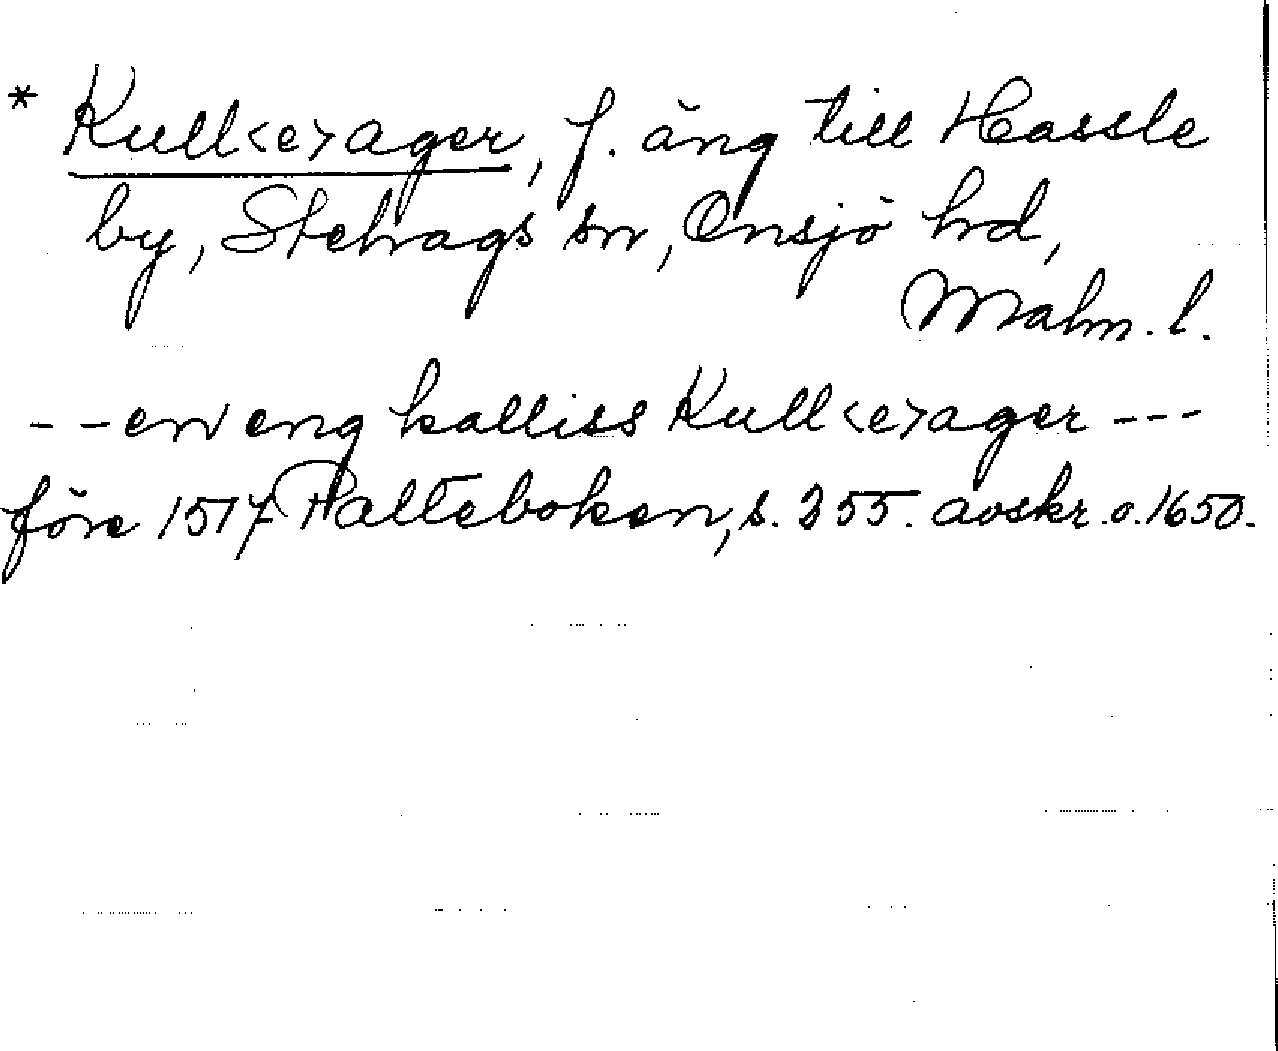 * Kull<e>ager, f. äng till Hassle
by, Stehags sn, Onsjö hd,
Malm. l.
- - en eng kalliss Kull<e>ager - - -
före 1517 Palteboken, s. 355. avskr. o. 1650.